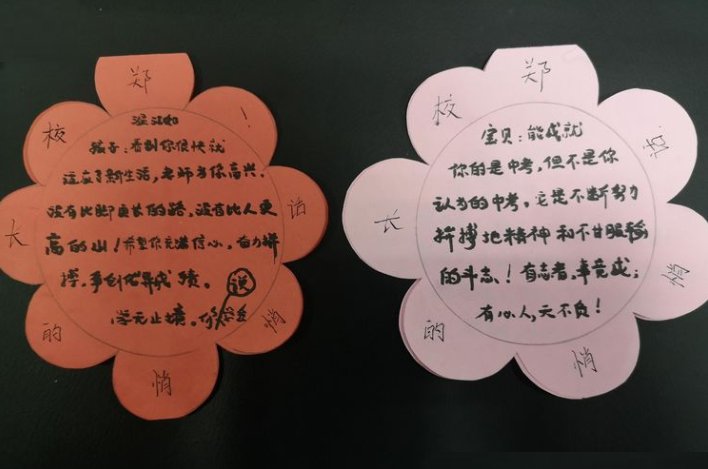 郑校长的悄悄话!
孩子:看到你很快就
适应了新生活,老师为你高兴。
没有比脚更长的路,没有比人更
高的山!希望你充满信心,奋力拼
搏,争创优异成绩。
学无止境,
郑校长的悄悄话
宝贝:能成就
你的是中考,但不是你
认为的中考,它是不断努力
拼搏地精神和不甘服输
的斗志!有志者,事竟成;
有心人,天不负!